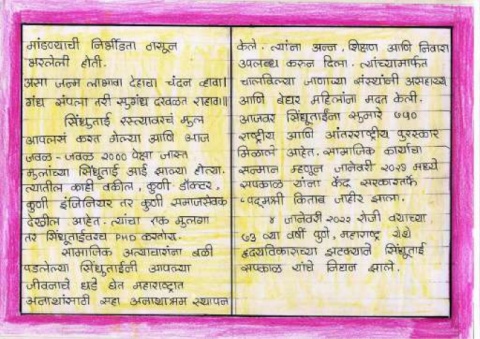 मांडण्याची निर्भीडता ठासून
भरलेली होती.
असा जन्म लाभावा देहाचा चंदन व्हावा।
गंध संपला तरी सुगंध दरवळत राहावा॥
सिंधुताई रस्त्यावरचं मुल
आपलसं करत गेल्या आणि आज
जवळ - जवळ २००० पेक्षा जास्त
मुलांच्या सिंधुताई आई झाल्या होत्या.
त्यातील काही वकील, कुणी डॉक्टर,
कुणी इंजिनियर तर कुणी समाजसेवक
देखील आहेत. त्यांचा एक मुलगा
तर सिंधूताईवरच PHD करतोय.
सामाजिक अत्याचारांना बळी
पडलेल्या सिंधुताईंनी आपल्या
जीवनाचे धडे घेत महाराष्ट्रात
अनाथांसाठी सहा अनाथाश्रम स्थापन
केले. त्यांना अन्न, शिक्षण आणि निवारा
उपलब्ध करुन दिला. त्यांच्यामार्फत
चालविल्या जाणाऱ्या संस्थांनी असहाय्य
आणि बेघर महिलांना मदत केली.
आजवर सिंधूताईंना सुमारे ७५०
राष्ट्रीय आणि आंतरराष्ट्रीय पुरस्कार
मिळाले आहेत. सामाजिक कार्याचा
सन्मान म्हणून जानेवारी २०२१ मध्ये
सपकाळ यांना केंद्र सरकारतर्फे
"पद्मश्री किताब जाहीर झाला.
४ जानेवारी २०२२ रोजी वयाच्या
७३ व्या वर्षी पुणे, महाराष्ट्र येथे
हृदयविकाराच्या झटक्याने सिंधुताई
सपकाळ यांचे निधन झाले.